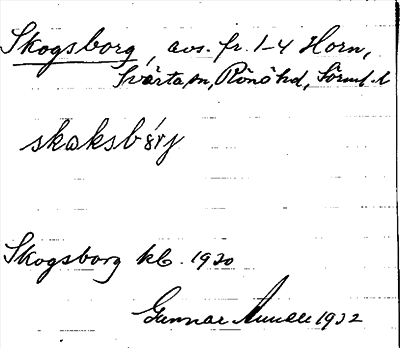 Skogsborg, avs. fr. 1-4 Horn,
Svärta sn, Rönö hd, Sörml. l
skɷksbɷrj
Skogsborg kb. 1920
Gunnar 1932